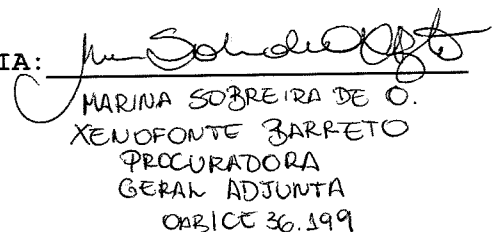 IA:
MARINA SOBREIRA DE O.
XENOFONTE BARRETO
PROCURADORA
GERAL ADJUNTA
OAB/CE 36.199